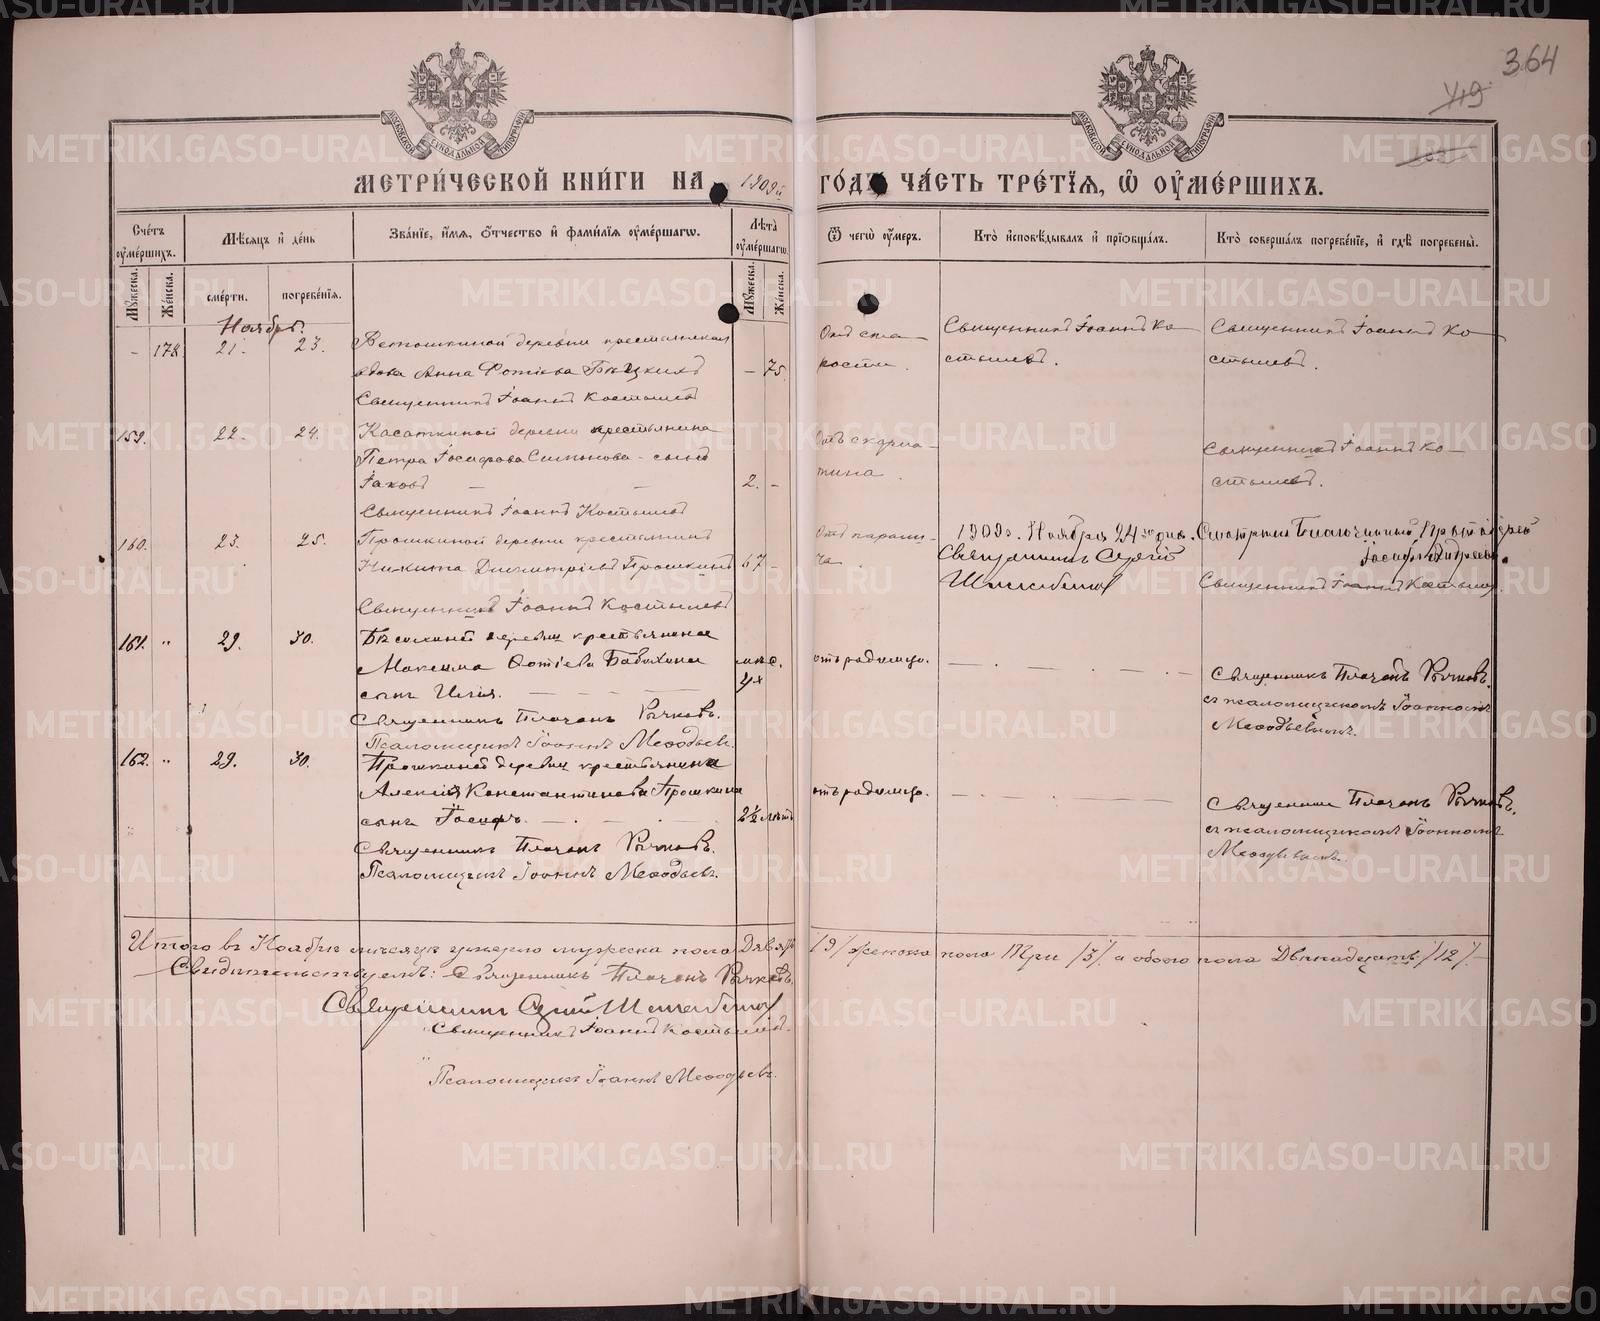 364
419
МЕТРИ́ЧЕСКОЙ КНИ́ГИ НА 1909й ГО́ДЪ ЧА́СТЬ ТРЕ́ТІЯ, Ѽ ОУ҆МЕ́РШИХЪ.
Сче́тъ оу҆ме́ршихъ.
Мѣ́сяцъ и҆ де́нь
Зва́нїе, и҆́мя, ѻ҆́тчество и҆ фами́лїя оу҆ме́ршагѡ.
Лѣ́та оу҆ме́ршагѡ.
Ѿ чегѡ̀ оу҆́меръ.
Кто̀ и҆сповѣ́дывалъ и҆ прїѡбща́лъ.
Кто̀ соверша́лъ погребе́нїе, и҆ гдѣ̀ погребены̀.
Мꙋ́жеска. Же́нска. сме́рти. погребе́нїя. Мꙋ́жеска. Же́нска.
Ноябрь.
- 178. 21. 23. Ветошкиной деревни крестьянская
вдова Анна Фотіева Бѣцкихъ - 75.
Священникъ Іоаннъ Костылевъ
Отъ ста-
рости.
Священникъ Іоаннъ Ко-
стылевъ.
Священникъ Іоаннъ Ко-
стылевъ.
159. 22. 24. Касаткиной деревни крестьянина
Петра Іосифова Симонова - сынъ
Іаковъ - - 2. -
Священникъ Іоаннъ Костылевъ
Отъ скарла-
тина.
Священникъ Іоаннъ Ко-
стылевъ.
160. 23. 25. Прошкиной деревни крестьянинъ
Никита Димитріевъ Прошкинъ 67 -
Священникъ Іоаннъ Костылевъ
Отъ парали-
ча
1909 г. Ноября 24го дня. Смотрѣлъ Благочинный, Протоіерей
Священникъ Сергій
Священникъ Іоаннъ Костылев.
161. " 29. 30. Бѣсихиной деревни крестьянина
Максима Фотіева Бабихина мѣс.
сынъ Илія. - - - -
Священникъ Платонъ Рычковъ.
Псаломщикъ Іоаннъ Меѳодьевъ.
отъ родимцо. - . - . - . -
Священникъ Платонъ Рычковъ.
съ псаломщикомъ Іоанномъ
Меѳодьевымъ.
162. " 29. 30. Прошкиной деревни крестьянина
Алексія Константинова Прошкина
сынъ Іосифъ. - . - . - 2½ лѣтъ
Священникъ Платонъ Рычковъ.
Псаломщикъ Іоаннъ Меѳодьевъ.
отъ родимцо. - . - . -
Священникъ Платонъ Рычковъ.
съ псаломщикомъ Іоанномъ
Меѳодьевымъ.
Итого въ Ноябрѣ мѣсяцѣ умерло мужеска пола Девять /9/ женска пола Три /3/. а обоего пола Двѣнадцать /12/. -
Свидѣтельствуемъ: Священникъ Платонъ Рычковъ.
Священникъ Сергій
Священникъ Іоаннъ Костылевъ.
Псаломщикъ Іоаннъ Меѳодьевъ.
METRIKI.GASO-URAL.RU